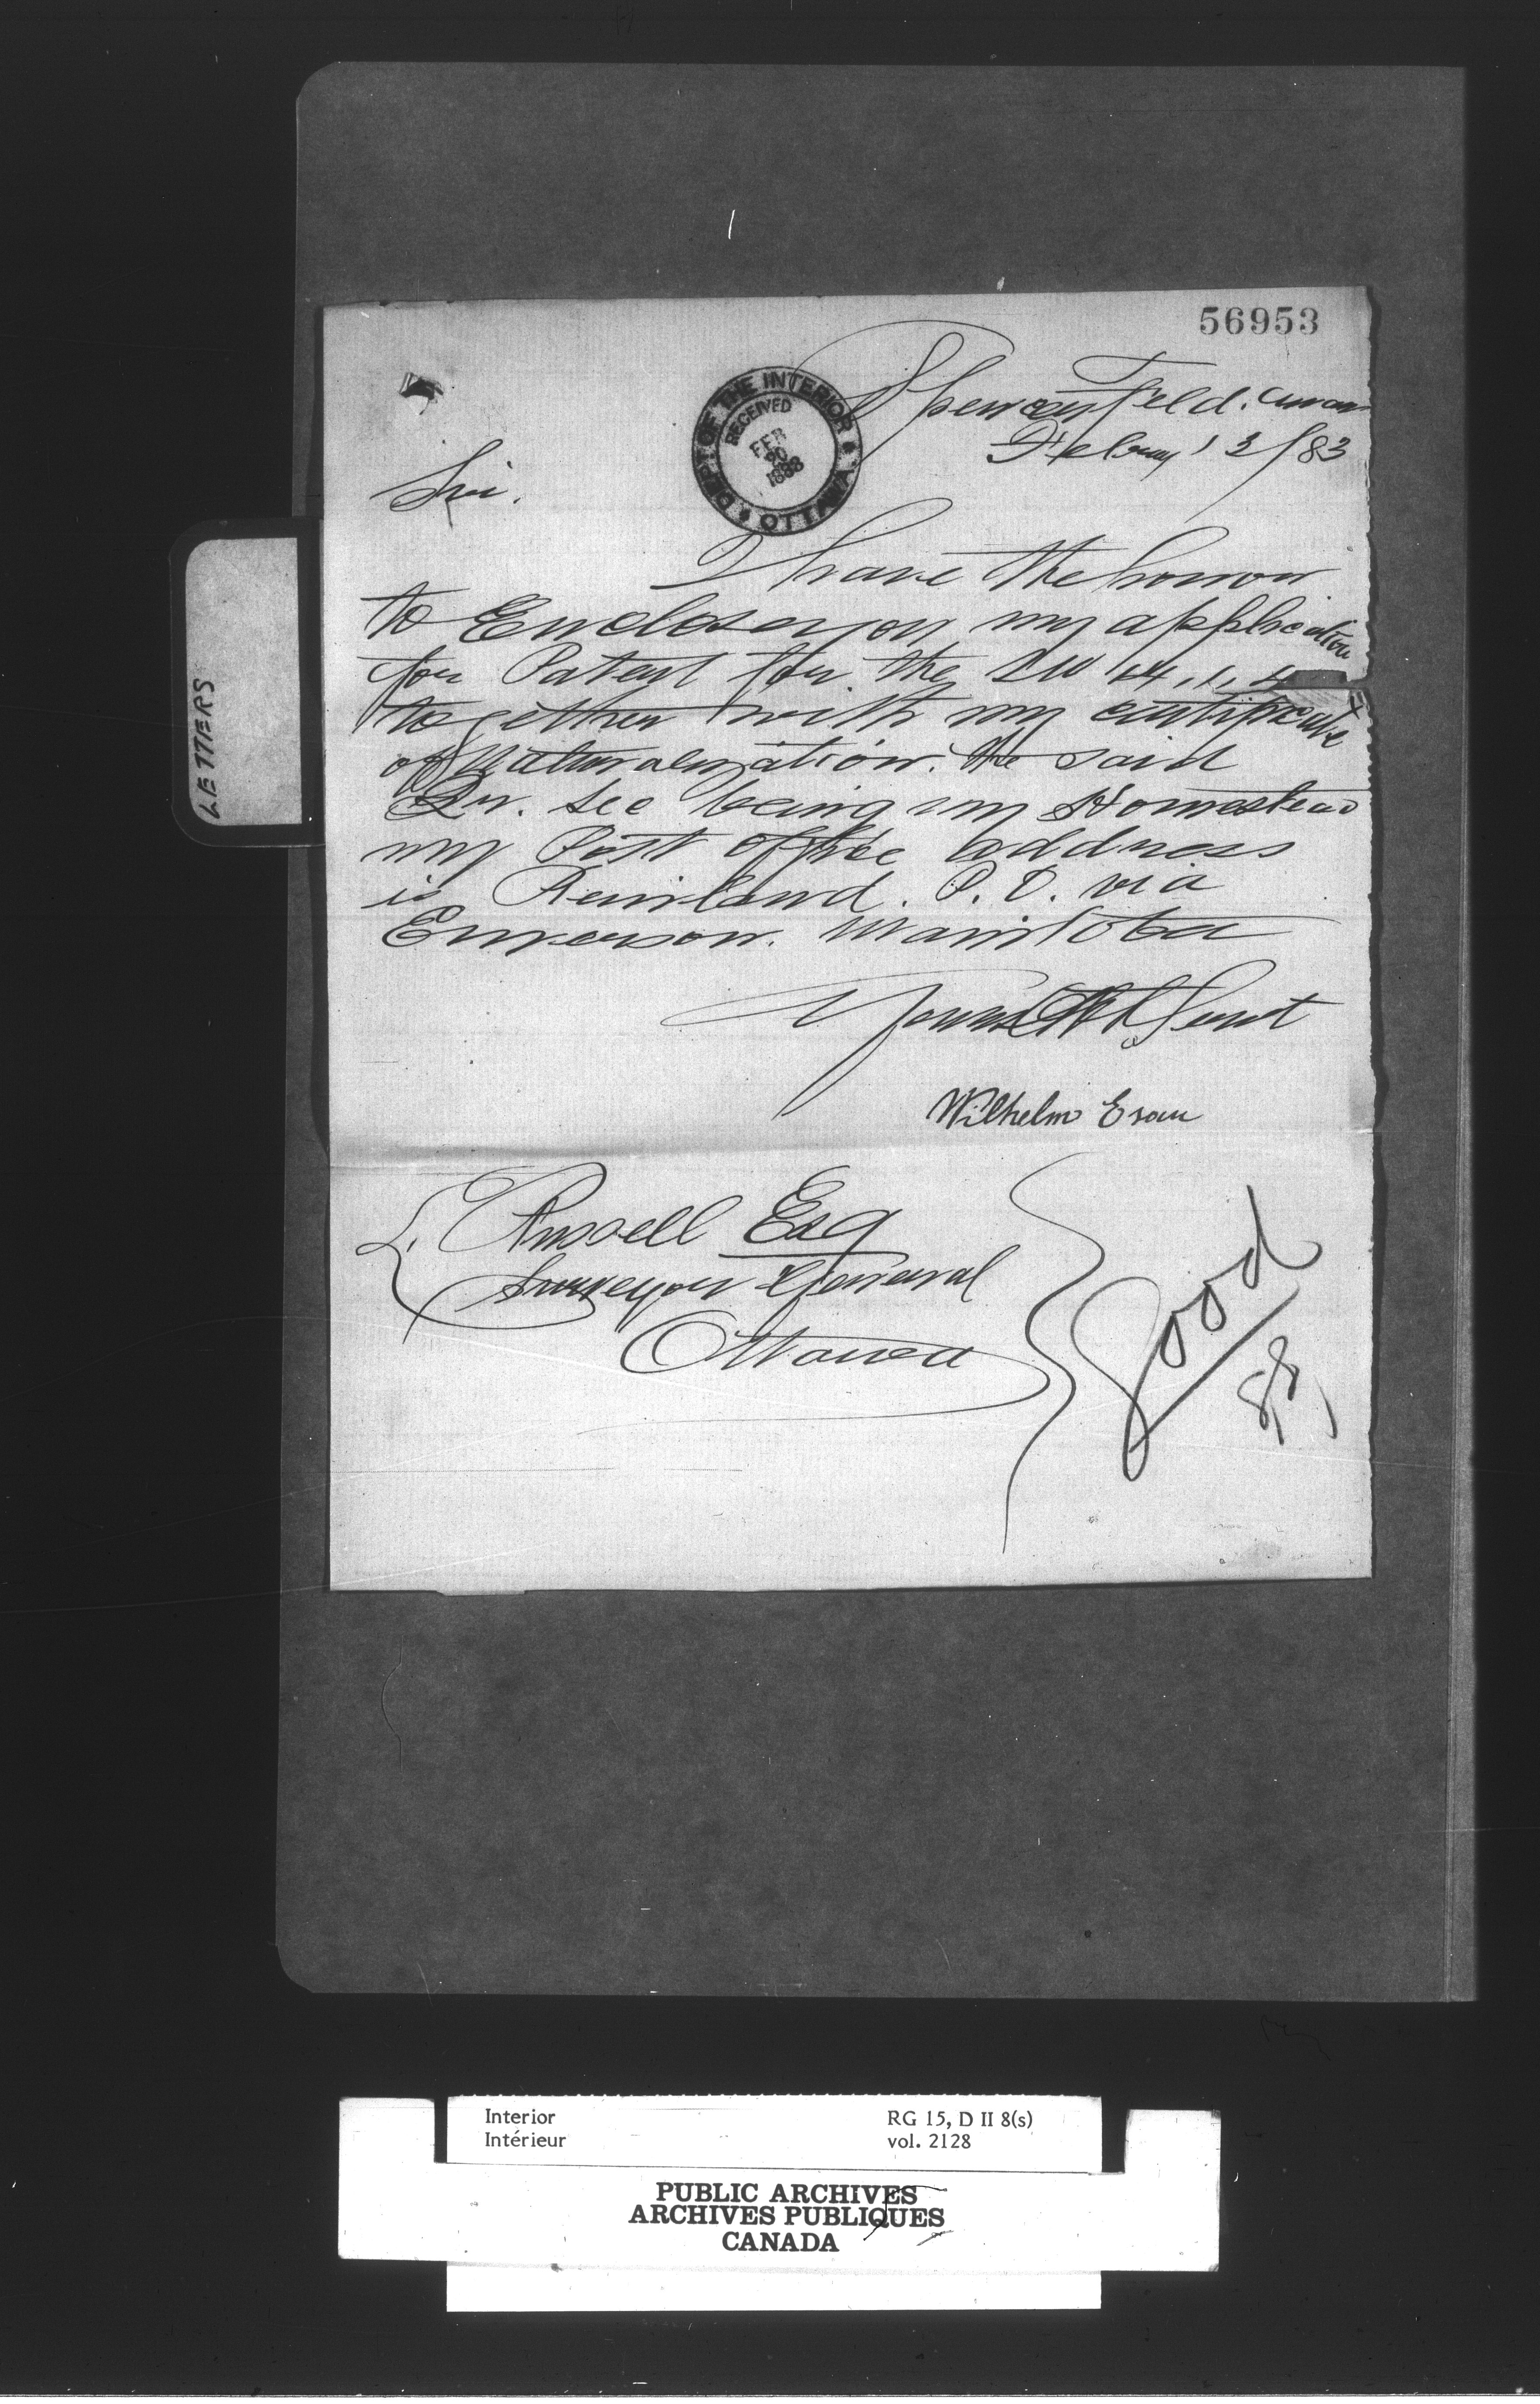 56953
DEPT OF THE INTERIOR
OTTAWA
RECEIVED
FEB
20
1883
Feld. Man
Febuay 13/83
Sir.
I have the honour
to Enclose you my application
for Patent for the SW 14, 1, 4
together with my certificate
of Naturalization. the said
Qur. Sec being my Homestead
my Post office address
is Reinland. P.O. via
Emerson. Manitoba
Your Obt Servt
Wilhelm Esau
L. Russell Esq
Surveyor General
Ottawa
Good
LETTERS
Interior
Intérieur
RG 15, D II 8(s)
vol. 2128
PUBLIC ARCHIVES
ARCHIVES PUBLIQUES
CANADA